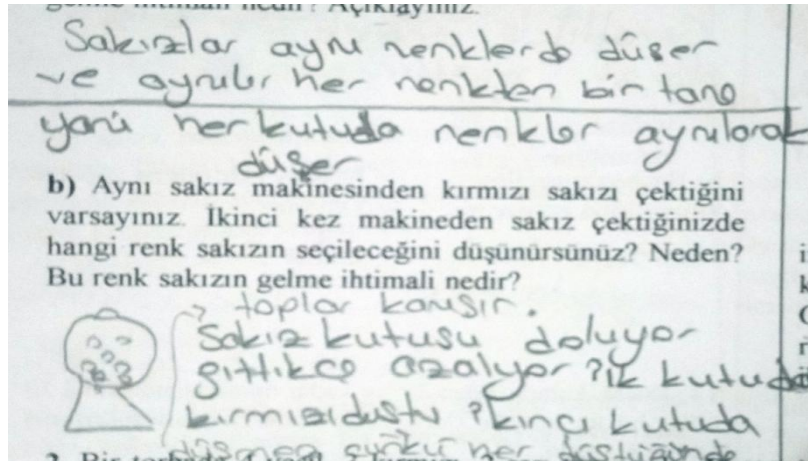 ihtimali nedir? Açıklayınız.
Sakızlar aynı renklerde düşer
ve ayrılır her renkten bir tane
yani her kutuda renkler ayrılarak
düşer
b) Aynı sakız makinesinden kırmızı sakızı çektiğini
varsayınız. İkinci kez makineden sakız çektiğinizde
hangi renk sakızın seçileceğini düşünürsünüz? Neden?
Bu renk sakızın gelme ihtimali nedir?
toplar karışır.
Sakız kutusu doluyor
gittikçe azalıyor ilk kutuda
kırmızı düştü ikinci kutuda
düşmez çünkü her düştüğünde
2. Bir torbada